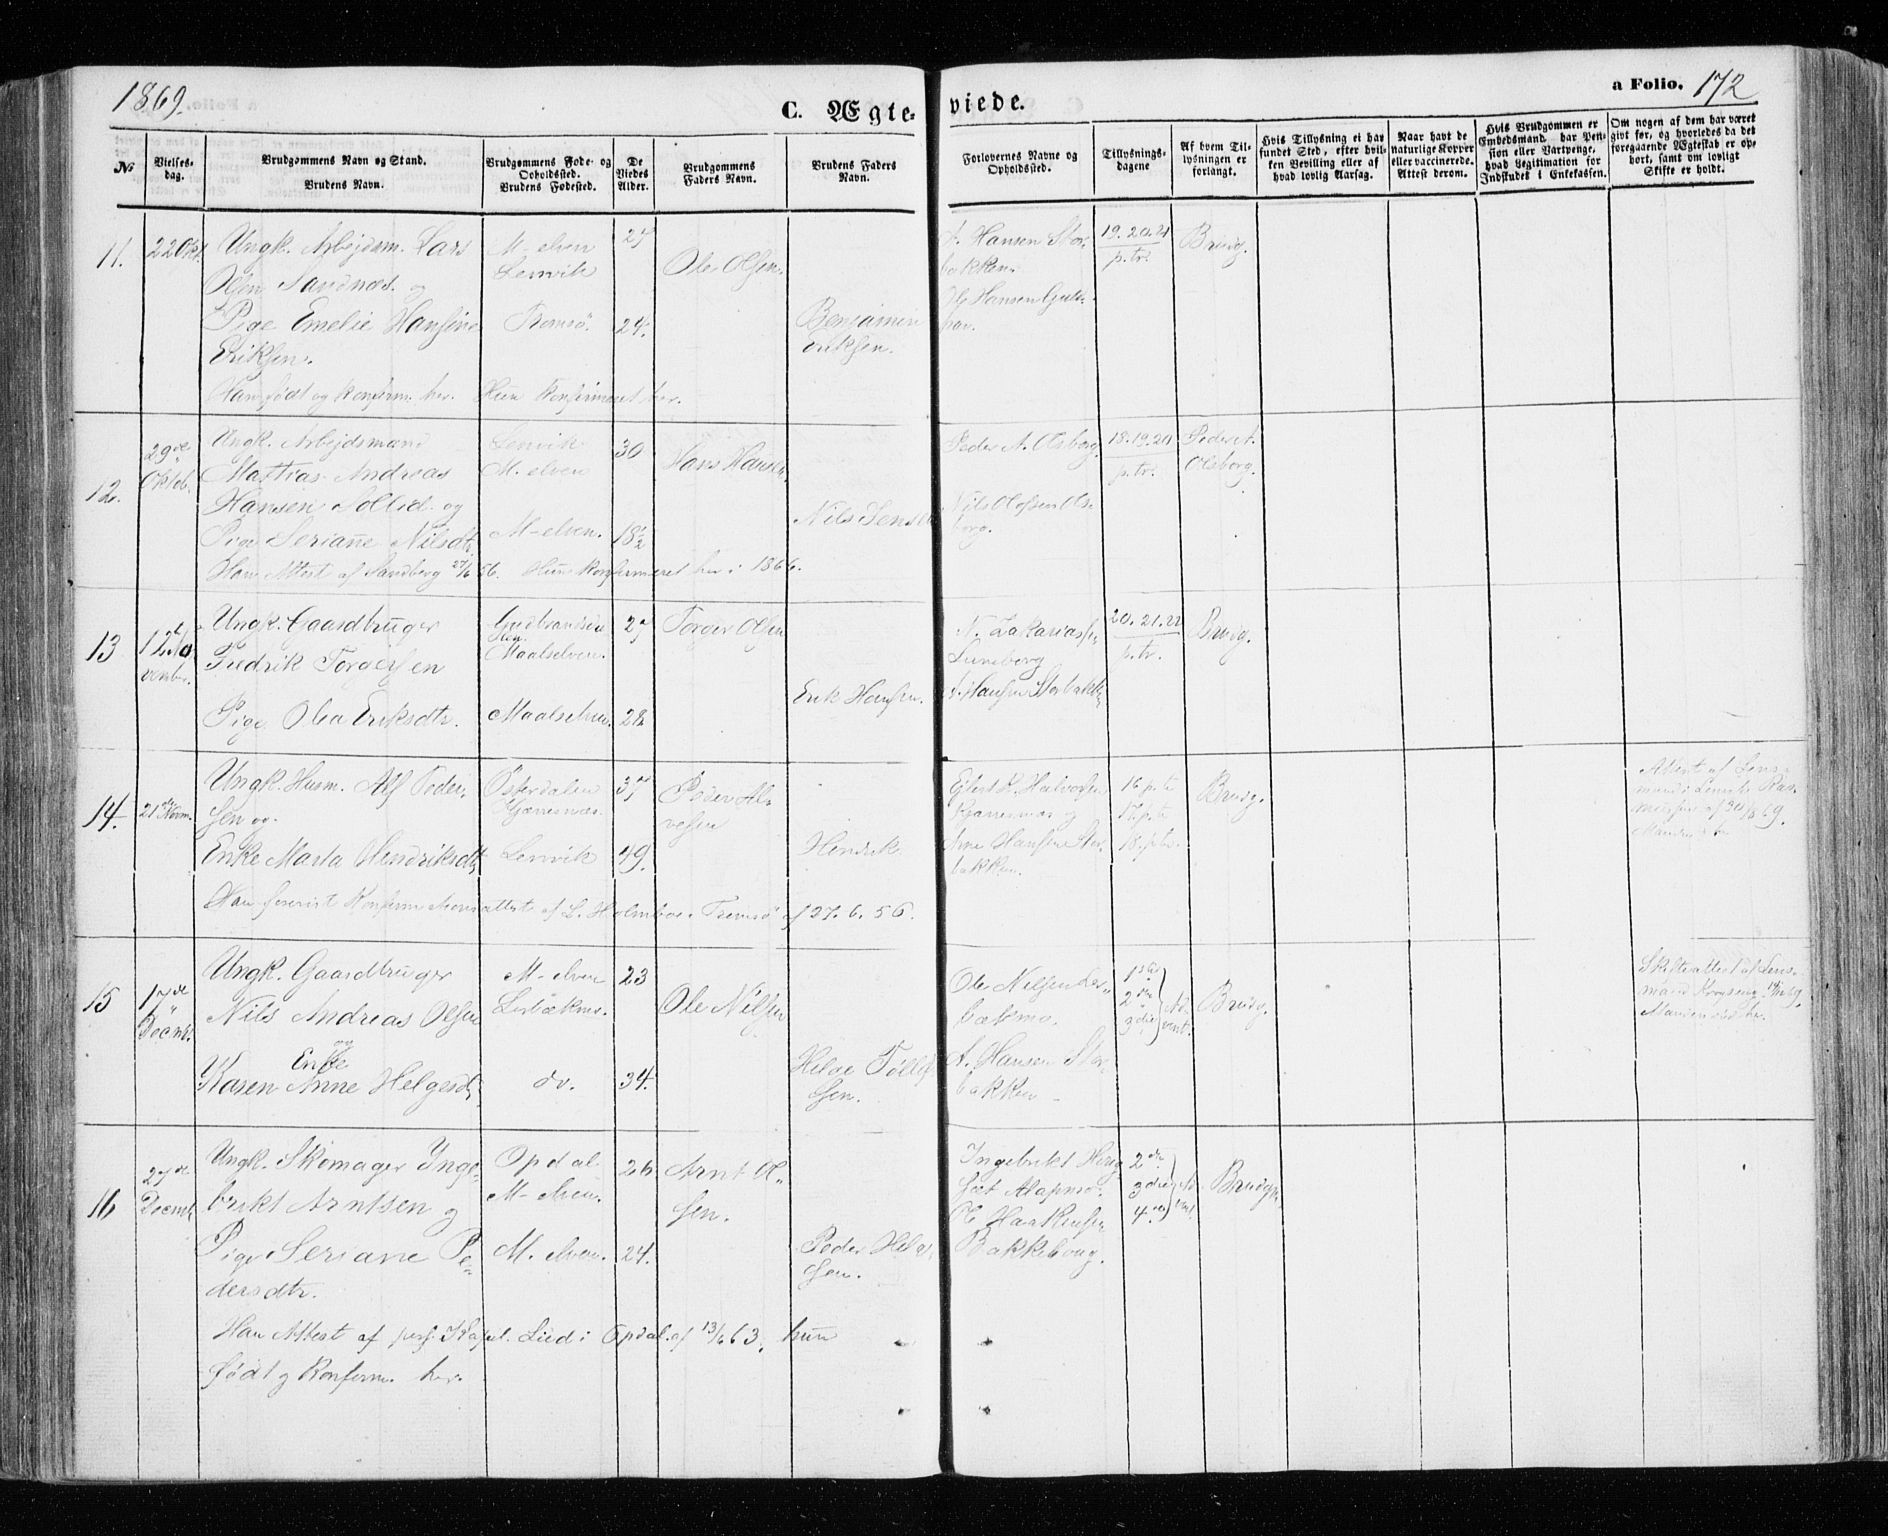 1869.
C. Ægte-
viede.
a Folio. 172
№
Vielses-
dag.
Brudgommens Navn og Stand.
Brudens Navn.
Brudgommens Føde- og
Opholdssted.
Brudens Fødested.
De
Viedes
Alder.
Brudgommens
Faders Navn.
Brudens Faders
Navn.
Forlovernes Navne og
Opholdssted.
Tillysnings-
dagene
Af hvem Til-
lysningen er
forlangt.
Hvis Tillysning ei har
fundet Sted, efter hvil-
ken Bevilling eller af
hvad lovlig Aarsag.
Naar havt de
naturlige Kopper
eller vaccinerede.
Attest derom.
Hvis Brudgommen er
Embedsmand, har Pen-
sion eller Vartpenge,
hvad Legitimation for
Indskudet i Enkekassen.
Om nogen af dem har været
givt før, og hvorledes da det
foregaaende Ægteskab er op-
hørt, samt om lovligt
Skifte er holdt.
11.
22 Okt.
Ungk. Arbejdsm. Lars
Olsen Sandnæs. og
Pige Emelie Hansine
Eriksen.
M-elven
Lenvik
Tromsø.
27
24.
Ole Olsen.
Benjamin
Eriksen.
A. Hansen Stor-
bakken.
Hansen
19. 20. 21
p. tr.
Brudg.
Han født og konfirm. her. Hun konfirmeret her.
12.
29de
Oktob.
Ungk. Arbejdsmand
Mathias Andreas
Hansen Sollid. og
Pige Seriane Nilsdtr.
Lenvik
M-elven
M-elven.
30
18½
Hans Hansen
Nils Jensen
Peder A. Olsborg.
Nils Olofsen Ols-
borg.
18. 19. 20
p. tr.
Peder A.
Olsborg.
Han Attest af Sandberg 27/6 56. Hun konfirmeret her i 1866.
13
12te No-
vember.
Ungk. Gaardbruger
Fredrik Torgersen
Pige Olea Eriksdtr.
Gudbrandsda-
len
Maalselven.
Maalselven.
27
28
Torger Olsen
Erik Hansen.
N. Zakariassen
Luneborg
A. Hansen Storbakken
20. 21. 22
p. tr.
Brudg.
14.
21de Novm.
Ungk. Husm. Alf Peder-
sen og
Enke Marta Hendriksdtr.
Østerdalen
Kjærresnæs.
Lenvik
37
49.
Peder Al-
vesen
Hendrik
Eilert K. Halvorsen
og
Arne Hansen Stor-
bakken.
16 p. tr
17. p. tr
18. p. tr.
Brudg.
Attest af Lens-
mand i Lenvik Ras-
mussen af 30/ 69.
Han forevist Konfirm af L. Holmboe Tromsø af 27. 6. 56.
15
17de
"
Decmb.
Ungk. Gaardbruger
Nils Andreas Olsen
og
Enke
Karen Anne Helgesdtr.
M-elven
do.
23
34.
Ole Nilsen
Helge Tøllef-
sen.
Ole Nilsen
bakmo.
A. Hansen Stor-
bakken
1ste
2den
3die
Ad-
vent.
Brudg.
Skifteattest af Lens-
mand 69.
16
27de
Decmb.
Ungk. Skomager Inge-
brikt Arntsen og
Pige Seriane Pe-
dersdtr.
Opdal
M-elven.
M. elven.
26
24.
Arnt Ol-
sen.
Peder Helge-
sen.
Ingebrikt
O. Haakensen
Bakkehoug.
2den
3die
4de
Ad-
vent.
Brudgm.
Han Attest af pers. Kapel. Lied i Opdal af 13/6 63. hun
født og konfirm. her.